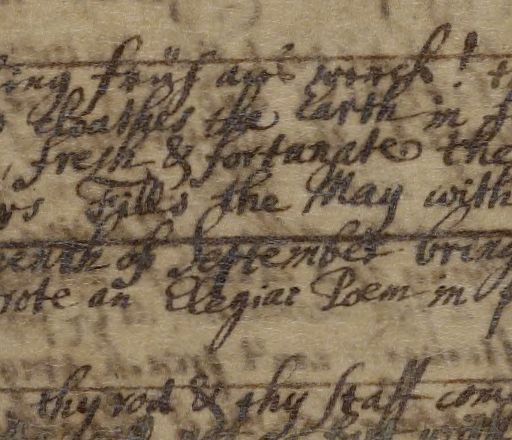 ing früh aus werck!
cloathes the Earth in
fresh & fortunate the
rs Fills the May with
venth of September bring
rote an Elegiac Poem in
thy rod & thy staff com